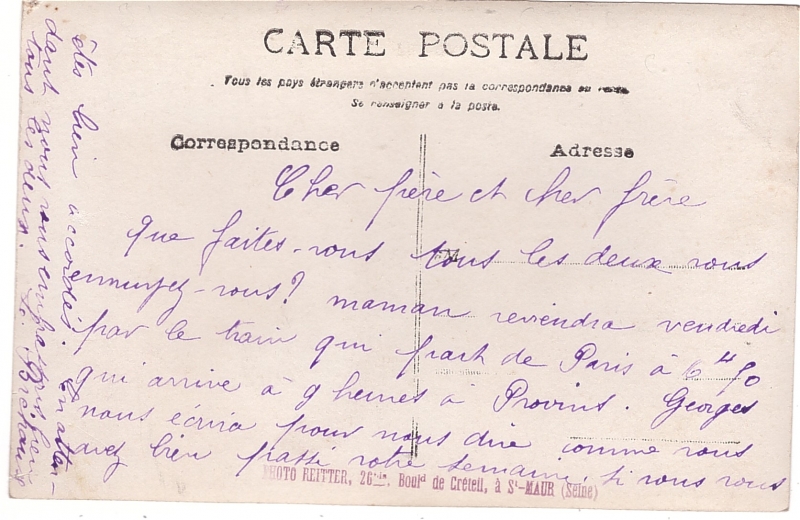 CARTE POSTALE
Tous les pays étrangers n'acceptent pas la correspondance au verso.
Se renseigner à la poste.
Correspondance
Adresse
Cher père et cher frère
que faites-vous tous les deux vous
ennuyez-vous? maman reviendra vendredi
par le train qui part de Paris à 6 H
qui arrive à 9 heures à Provins. Georges
nous écrira pour nous dire comme vous
avez bien passé votre semaine, si vous vous
êtes bien accordés. En atten-
dant nous vous embrassons bien
tous les deux.
PHOTO REITTER, 26bis, Bould de Créteil, à St-MAUR (Seine)